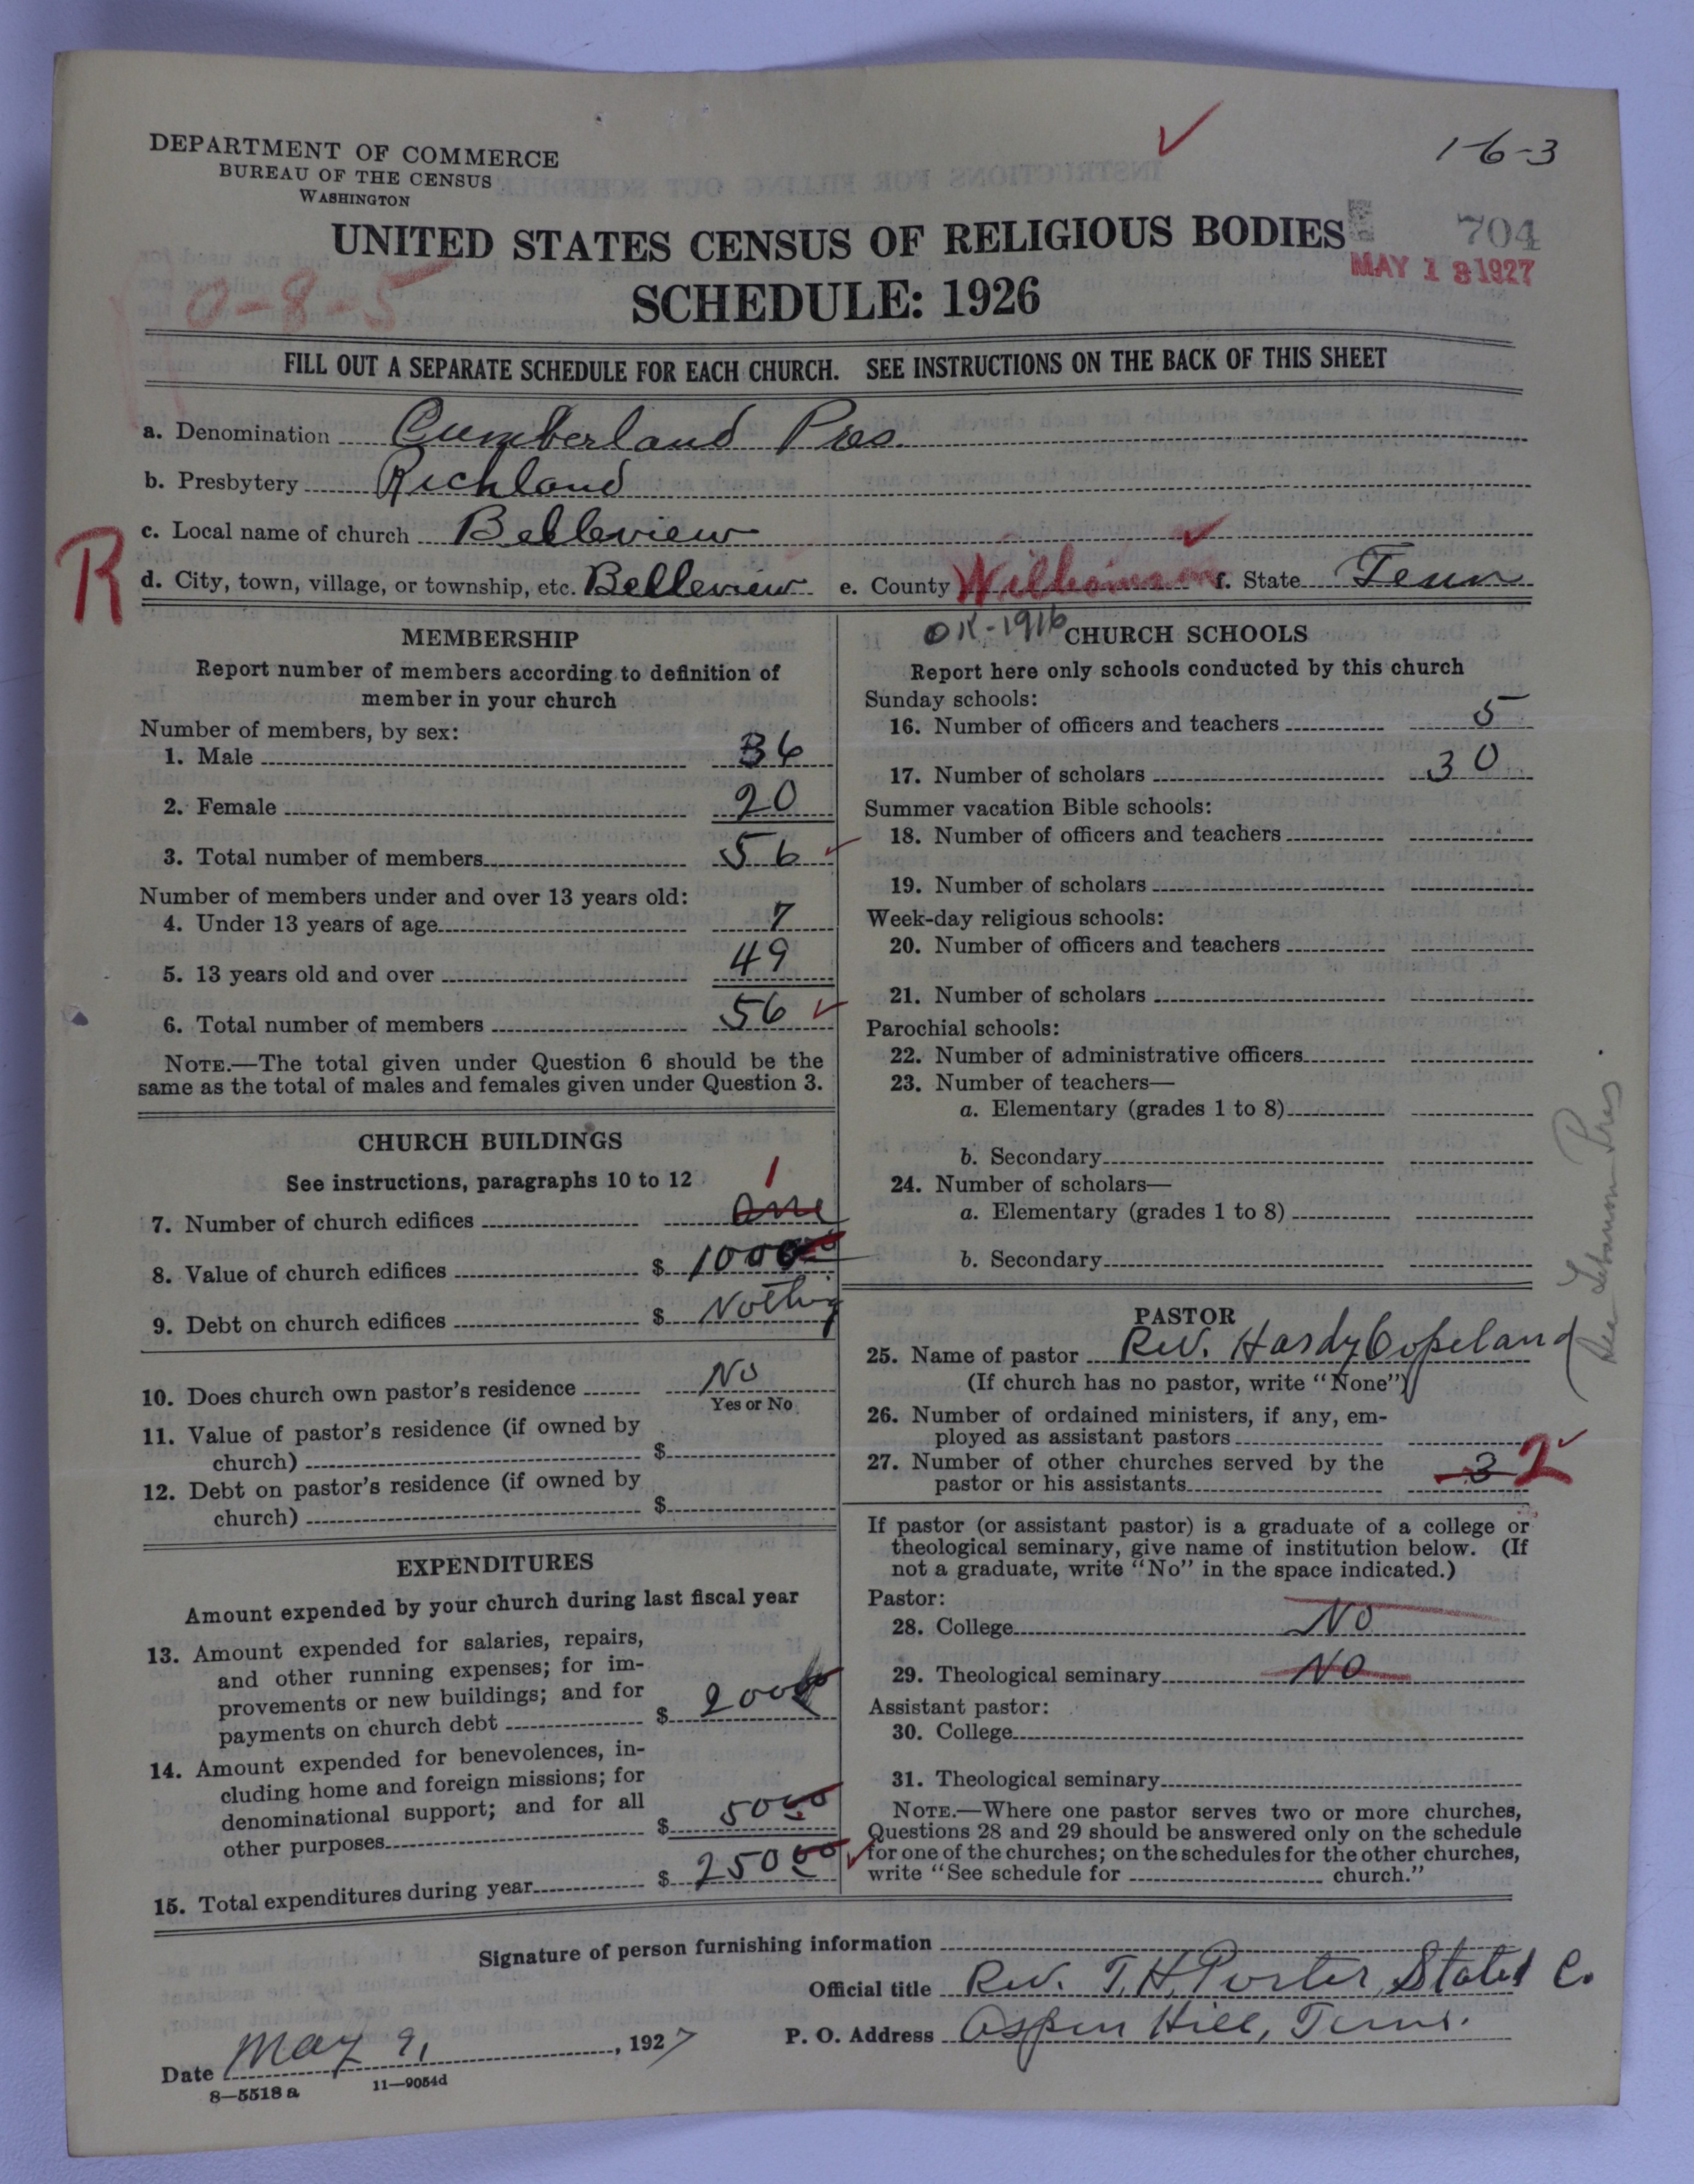 DEPARTMENT OF COMMERCE
BUREAU OF THE CENSUS
WASHINGTON
1-6-3
UNITED STATES CENSUS OF RELIGIOUS BODIES
704
SCHEDULE: 1926
MAY 18 1927
0-8-5
FILL OUT A SEPARATE SCHEDULE FOR EACH CHURCH. SEE INSTRUCTIONS ON THE BACK OF THIS SHEET
a. Denomination Cumberland Pres.
b. Presbytery Richland
c. Local name of church Belleview
R
d. City, town, village, or township, etc. Belleview e. County Williamson f. State Tenn
MEMBERSHIP
Report number of members according to definition of
member in your church
Number of members, by sex:
1. Male 36
2. Female 20
3. Total number of members 56
Number of members under and over 13 years old:
4. Under 13 years of age 7
5. 13 years old and over 49
6. Total number of members 56
NOTE.—The total given under Question 6 should be the
same as the total of males and females given under Question 3.
CHURCH BUILDINGS
See instructions, paragraphs 10 to 12
1
7. Number of church edifices One
8. Value of church edifices $ 1000
9. Debt on church edifices $ Nothing
10. Does church own pastor's residence No
Yes or No
11. Value of pastor's residence (if owned by
church) $
12. Debt on pastor's residence (if owned by
church) $
EXPENDITURES
Amount expended by your church during last fiscal year
13. Amount expended for salaries, repairs,
and other running expenses; for im-
provements or new buildings; and for
payments on church debt $ 200 00
14. Amount expended for benevolences, in-
cluding home and foreign missions; for
denominational support; and for all
other purposes $ 50 00
15. Total expenditures during year $ 250 00
OK-1916 CHURCH SCHOOLS
Report here only schools conducted by this church
Sunday schools:
16. Number of officers and teachers 5
17. Number of scholars 30
Summer vacation Bible schools:
18. Number of officers and teachers
19. Number of scholars
Week-day religious schools:
20. Number of officers and teachers
21. Number of scholars
Parochial schools:
22. Number of administrative officers
23. Number of teachers—
a. Elementary (grades 1 to 8)
b. Secondary
24. Number of scholars—
a. Elementary (grades 1 to 8)
b. Secondary
PASTOR
25. Name of pastor Rev. Hardy Copeland
(If church has no pastor, write "None")
See Lebanon Pres
26. Number of ordained ministers, if any, em-
ployed as assistant pastors
27. Number of other churches served by the
pastor or his assistants 3 2
If pastor (or assistant pastor) is a graduate of a college or
theological seminary, give name of institution below. (If
not a graduate, write "No" in the space indicated.)
Pastor:
28. College No
29. Theological seminary No
Assistant pastor:
30. College
31. Theological seminary
NOTE.—Where one pastor serves two or more churches,
Questions 28 and 29 should be answered only on the schedule
for one of the churches; on the schedules for the other churches,
write "See schedule for church."
Signature of person furnishing information
Official title Rev. T. H. Porter, Stated C.
Date May 9, 1927 P. O. Address Aspen Hill, Tenn.
8—5518 a 11—9054d